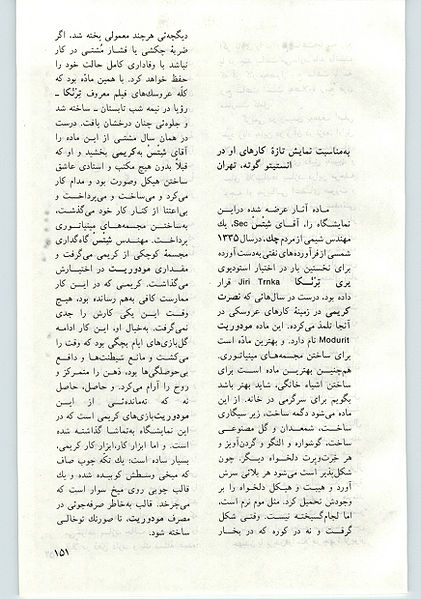 به‌مناسبت نمایش تازهٔ کارهای او در
انستیتو گوته، تهران
ماده آثار عرضه شده دراین
نمایشگاه را، آقـای شِتْسْ Sec، یك
مهندس شیمی ازمردم چك، درسال ۱۳۳۵
شمسی ازفرآورده‌های نفتی به‌دست‌آورده
برای نخستین بار در اختیار استودیوی
یری تِرْنْـکـا Jiri Trnka قرار
داده بود، درست در سال‌هائی که نصرت
کریمی در زمینهٔ کارهای عروسکی در
آنجا تلمذ می‌کرد. این ماده مودوریت
Modurit نام دارد. و بهترین مادّه است
برای ساختن مجسمه‌های مینیاتوری.
هم‌چنیـن بهتریـن ماده اسـت برای
ساختن اشیاء خانگی. شاید بهتر باشد
بگویم برای سرگرمی در خانه. از این
ماده می‌شود دگمه ساخت، زیر سیگاری
ساخـت، شمعـدان و گل مصنوعـی
ساخت، گوشواره و النگو و گردن‌آویز و
هر خِرت‌وپرت دلخـواه دیگـر. چون
شکل‌پذیر است می‌شود هر بلائی سرش
آورد و هیبت و هیکل دلخواه را بر
وجودش تحمیل کرد. مثل موم نرم است،
اما لجام‌گسیخته نیست. وقتـی شکل
گرفـت و نه در کوره که در بخـار
دیگچه‌ئی هرچند معمولی پخته شد، اگر
ضربهٔ چکشی یا فشـار مُشتـی در کار
نباشد با وفاداری کامل حالت خود را
حفظ خواهد کرد. با همین مادّه بود که
کلّه عروسك‌های فیلم معروف تِرْنْکا ـ
رؤیا در نیمه شب تابستان ـ ساخته شد
و جلوه‌ئی چنان درخشان یافت. درست
در همان سال مشتـی از ایـن ماده را
آقای شِتْسْ به‌کریمی بخشید و او که
قبلاً بدون هیچ مکتب و استادی عاشق
ساختن هیکل وصورت بود و مدام کار
می‌کرد و می‌ساخـت و می‌پرداخـت و
بی‌اعتنا از کنـار کار خود می‌گذشـت،
به‌ساختـن مجسمـه‌هـای مینیـاتـوری
پرداخـت. مهنـدس شِتْسْ گاه‌گداری
مجسمهٔ کوچکی از کریمی می‌گرفت و
مقـداری مودوریـت در اختیـارش
می‌گذاشت. کریمـی که در این کـار
ممارست کافی به‌هم رسانده بود، هیچ
وقـت ایـن یکی کارش را جدی
نمی‌گرفت. به‌خیال او، این کار ادامه
گل‌بازی‌های ایام بچگی بود که وقت را
می‌کشت و مانع شیطنت‌هـا و دافـع
بی‌حوصلگی‌ها بود، ذهن را متمرکز و
روح را آرام می‌کرد. و حاصل، حاصل
نه که ته‌مانده‌ئـی از ایـن
مودوریت‌بازی‌های کریمی است که در
این نمایشگاه به‌تماشا گذاشتـه شده
است. و اما ابزار کار، ابزار کار کریمی،
بسیار ساده است: یك تکّه چوب صاف
که میخی وسطش کوبیده شده و یك
قالب چوبی روی میخ سوار است که
می‌چرخد. قالب به‌خاطر صرفه‌جوئی در
مصرف مودوریـت، تا صورتك توخالـی
ساخته شود.
۱۵۱